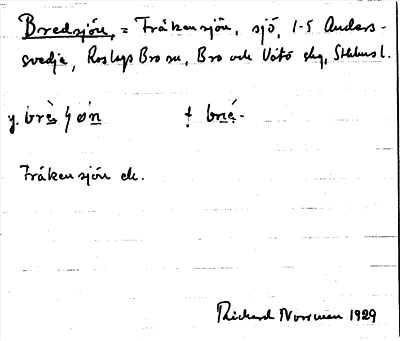 Bredsjön, = Fräkensjön, sjö, 1-5 Anders-
svedja, Roslags Bro sn, Bro och Vätö skg, Sthlms l.
y. brè̱s ɧ ø̀n ɟ bri̱é-
Fräkensjön ek.
Rickard Norrman 1929